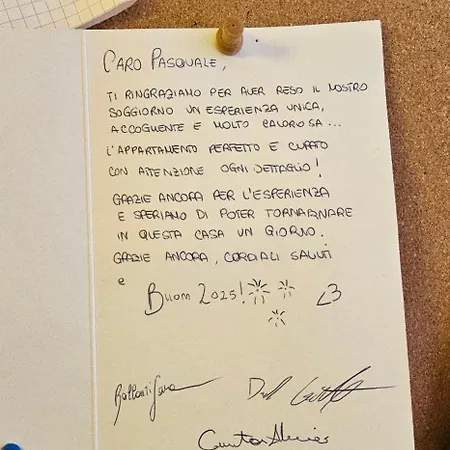 CARO PASQUALE,
TI RINGRAZIAMO PER AVER RESO IL NOSTRO
SOGGIORNO UN'ESPERIENZA UNICA,
ACCOGLIENTE E MOLTO CALOROSA...
L'APPARTAMENTO PERFETTO E CURATO
CON ATTENZIONE OGNI DETTAGLIO!
GRAZIE ANCORA PER L'ESPERIENZA
E SPERIAMO DI POTER TORNARE
IN QUESTA CASA UN GIORNO.
GRAZIE ANCORA, CORDIALI SALUTI
e
Buon 2025! <3